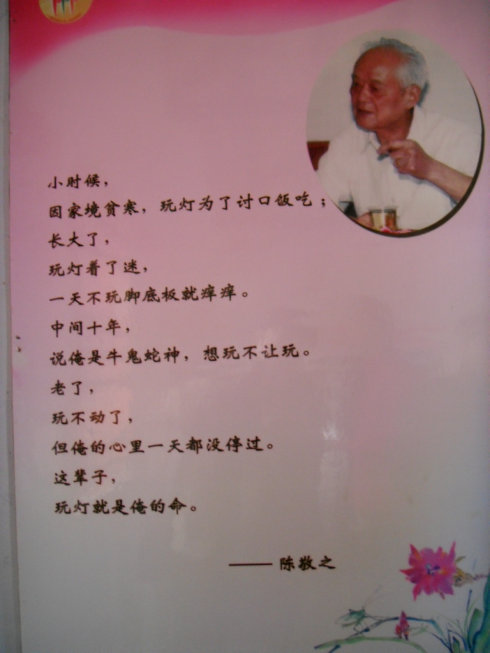 小时候，
因家境贫寒，玩灯为了讨口饭吃；
长大了，
玩灯着了迷，
一天不玩脚底板就痒痒。
中间十年，
说俺是牛鬼蛇神，想玩不让玩。
老了，
玩不动了，
但俺的心里一天都没停过。
这辈子，
玩灯就是俺的命。
——陈敬之